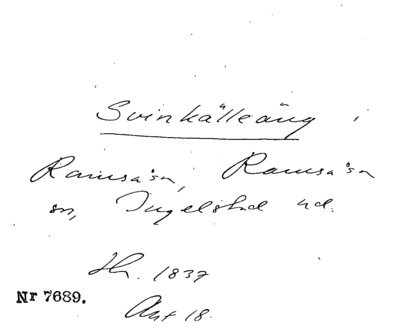 Svinkälleäng i
Ramsåsa, Ramsåsa
sn, Ingelstad hd.
Hr. 1837
Nr 7689.
Akt 18.